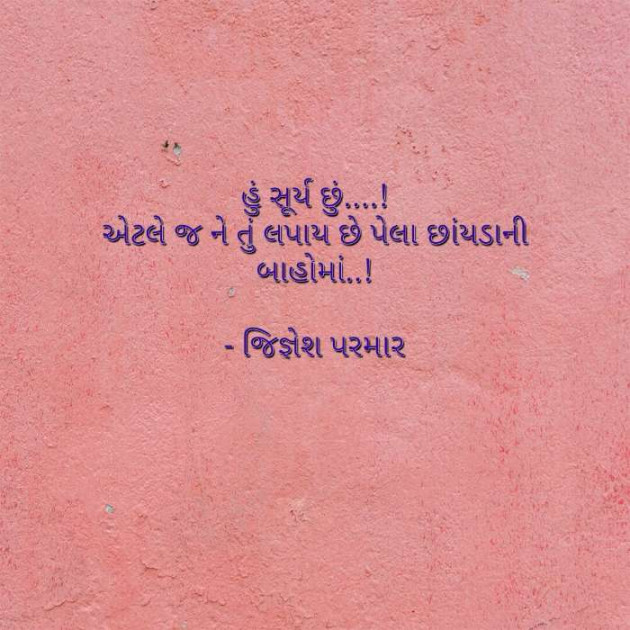 હું સૂર્ય છું....!
એટલે જ ને તું લપાય છે પેલા છાંયડાની
બાહોમાં..!
- જિજ્ઞેશ પરમાર